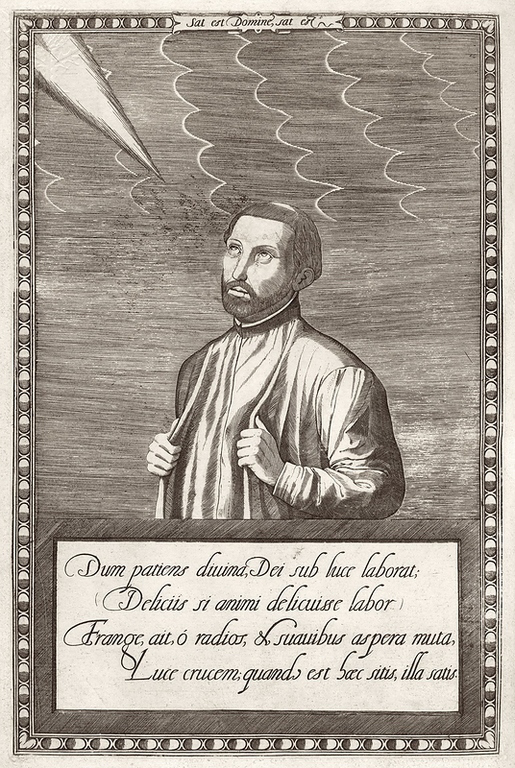 Sat est Domine, sat est
Dum patiens diuina, Dei sub luce laborat;
(Deliciis si animi delicuisse labor)
Frange, ait, ó radios, & suauibus aspera muta,
Luce crucem; quando est hæc sitis, illa satis.